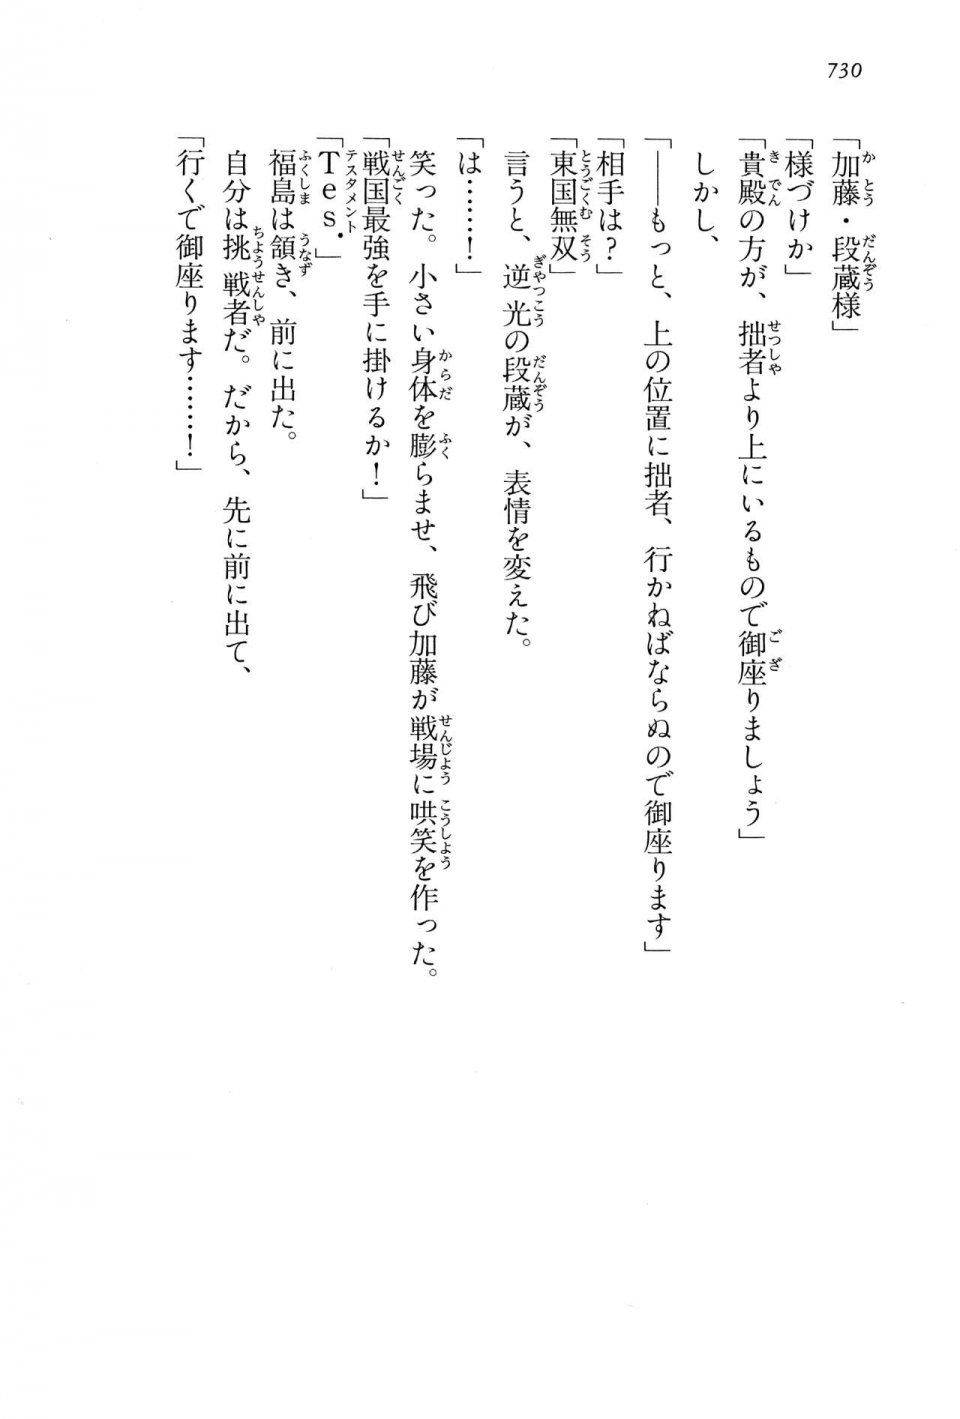 730
「加藤・段蔵様」
「様づけか」
「貴殿の方が、拙者より上にいるもので御座りましょう」
しかし、
「――もっと、上の位置に拙者、行かねばならぬので御座ります」
「相手は？」
「東国無双」
言うと、逆光の段蔵が、表情を変えた。
「は……！」
笑った。小さい身体を膨らませ、飛び加藤が戦場に哄笑を作った。
「戦国最強を手に掛けるか！」
「Tes.」
福島は頷き、前に出た。
自分は挑戦者だ。だから、先に前に出て、
「行くで御座ります……！」